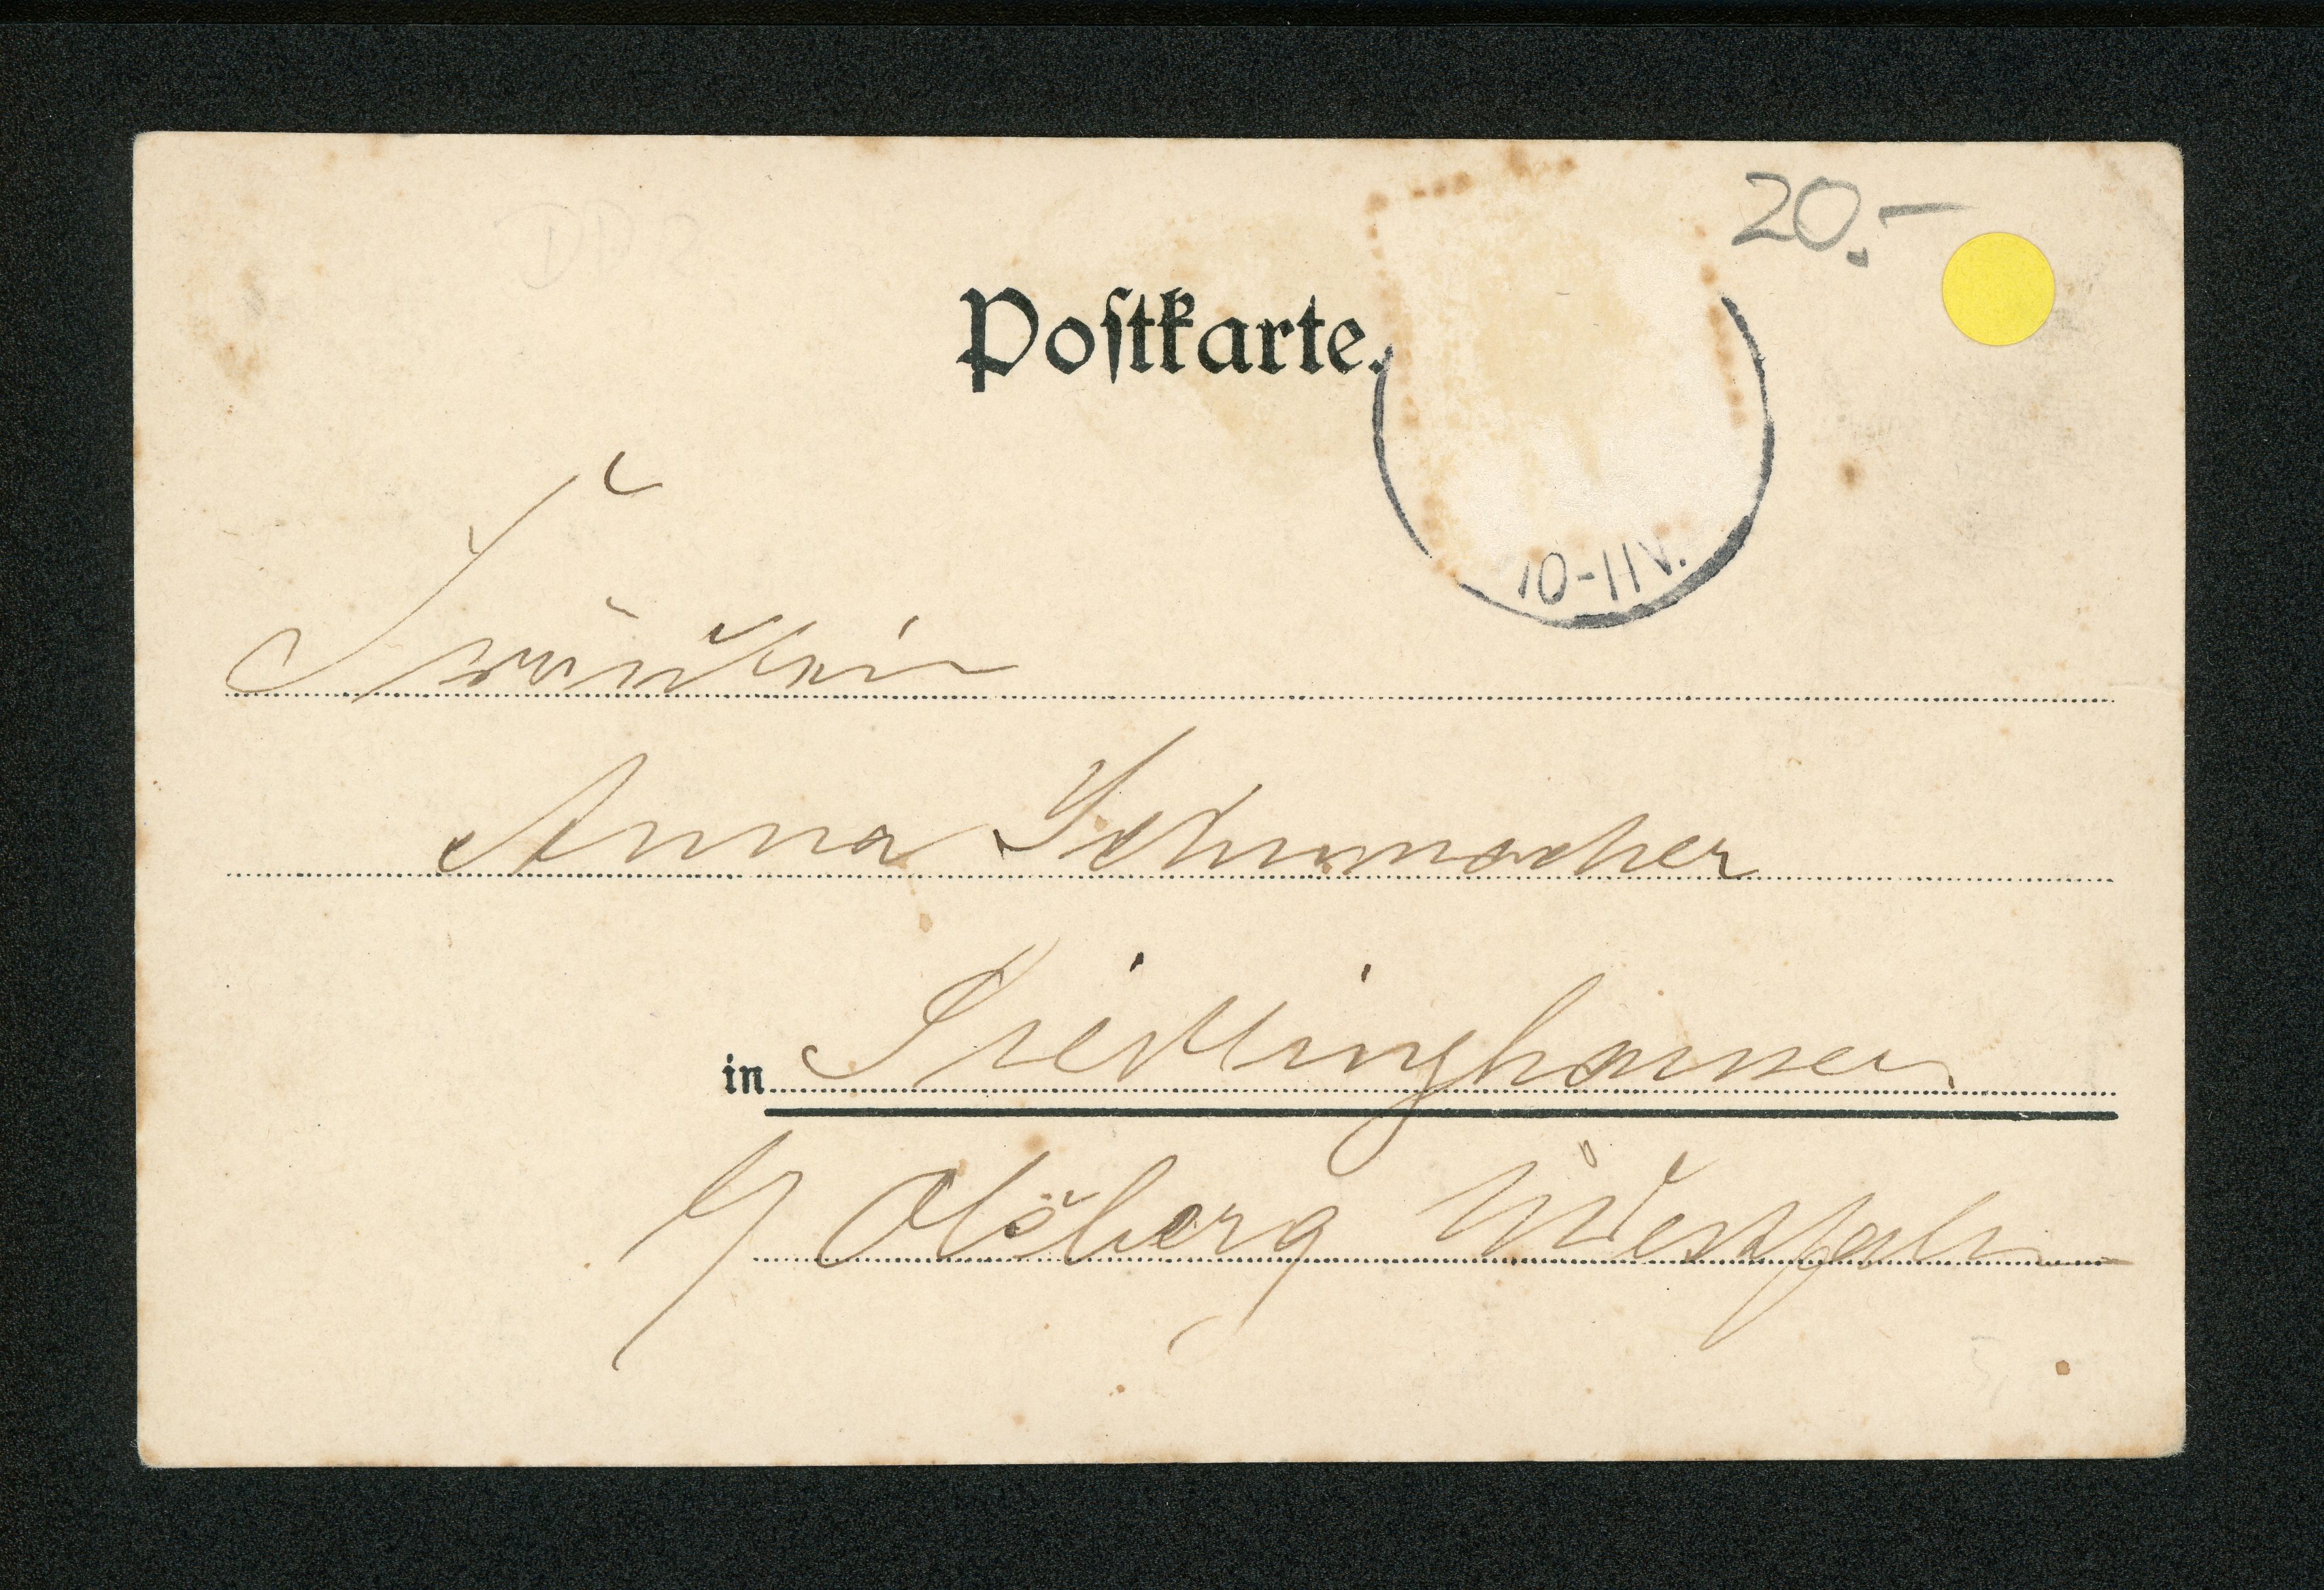 DD2
20.-
Postkarte.
10-11V.
Fräulein
Anna Schumacher
in Siedlinghausen
b/ Olsberg Westfalen